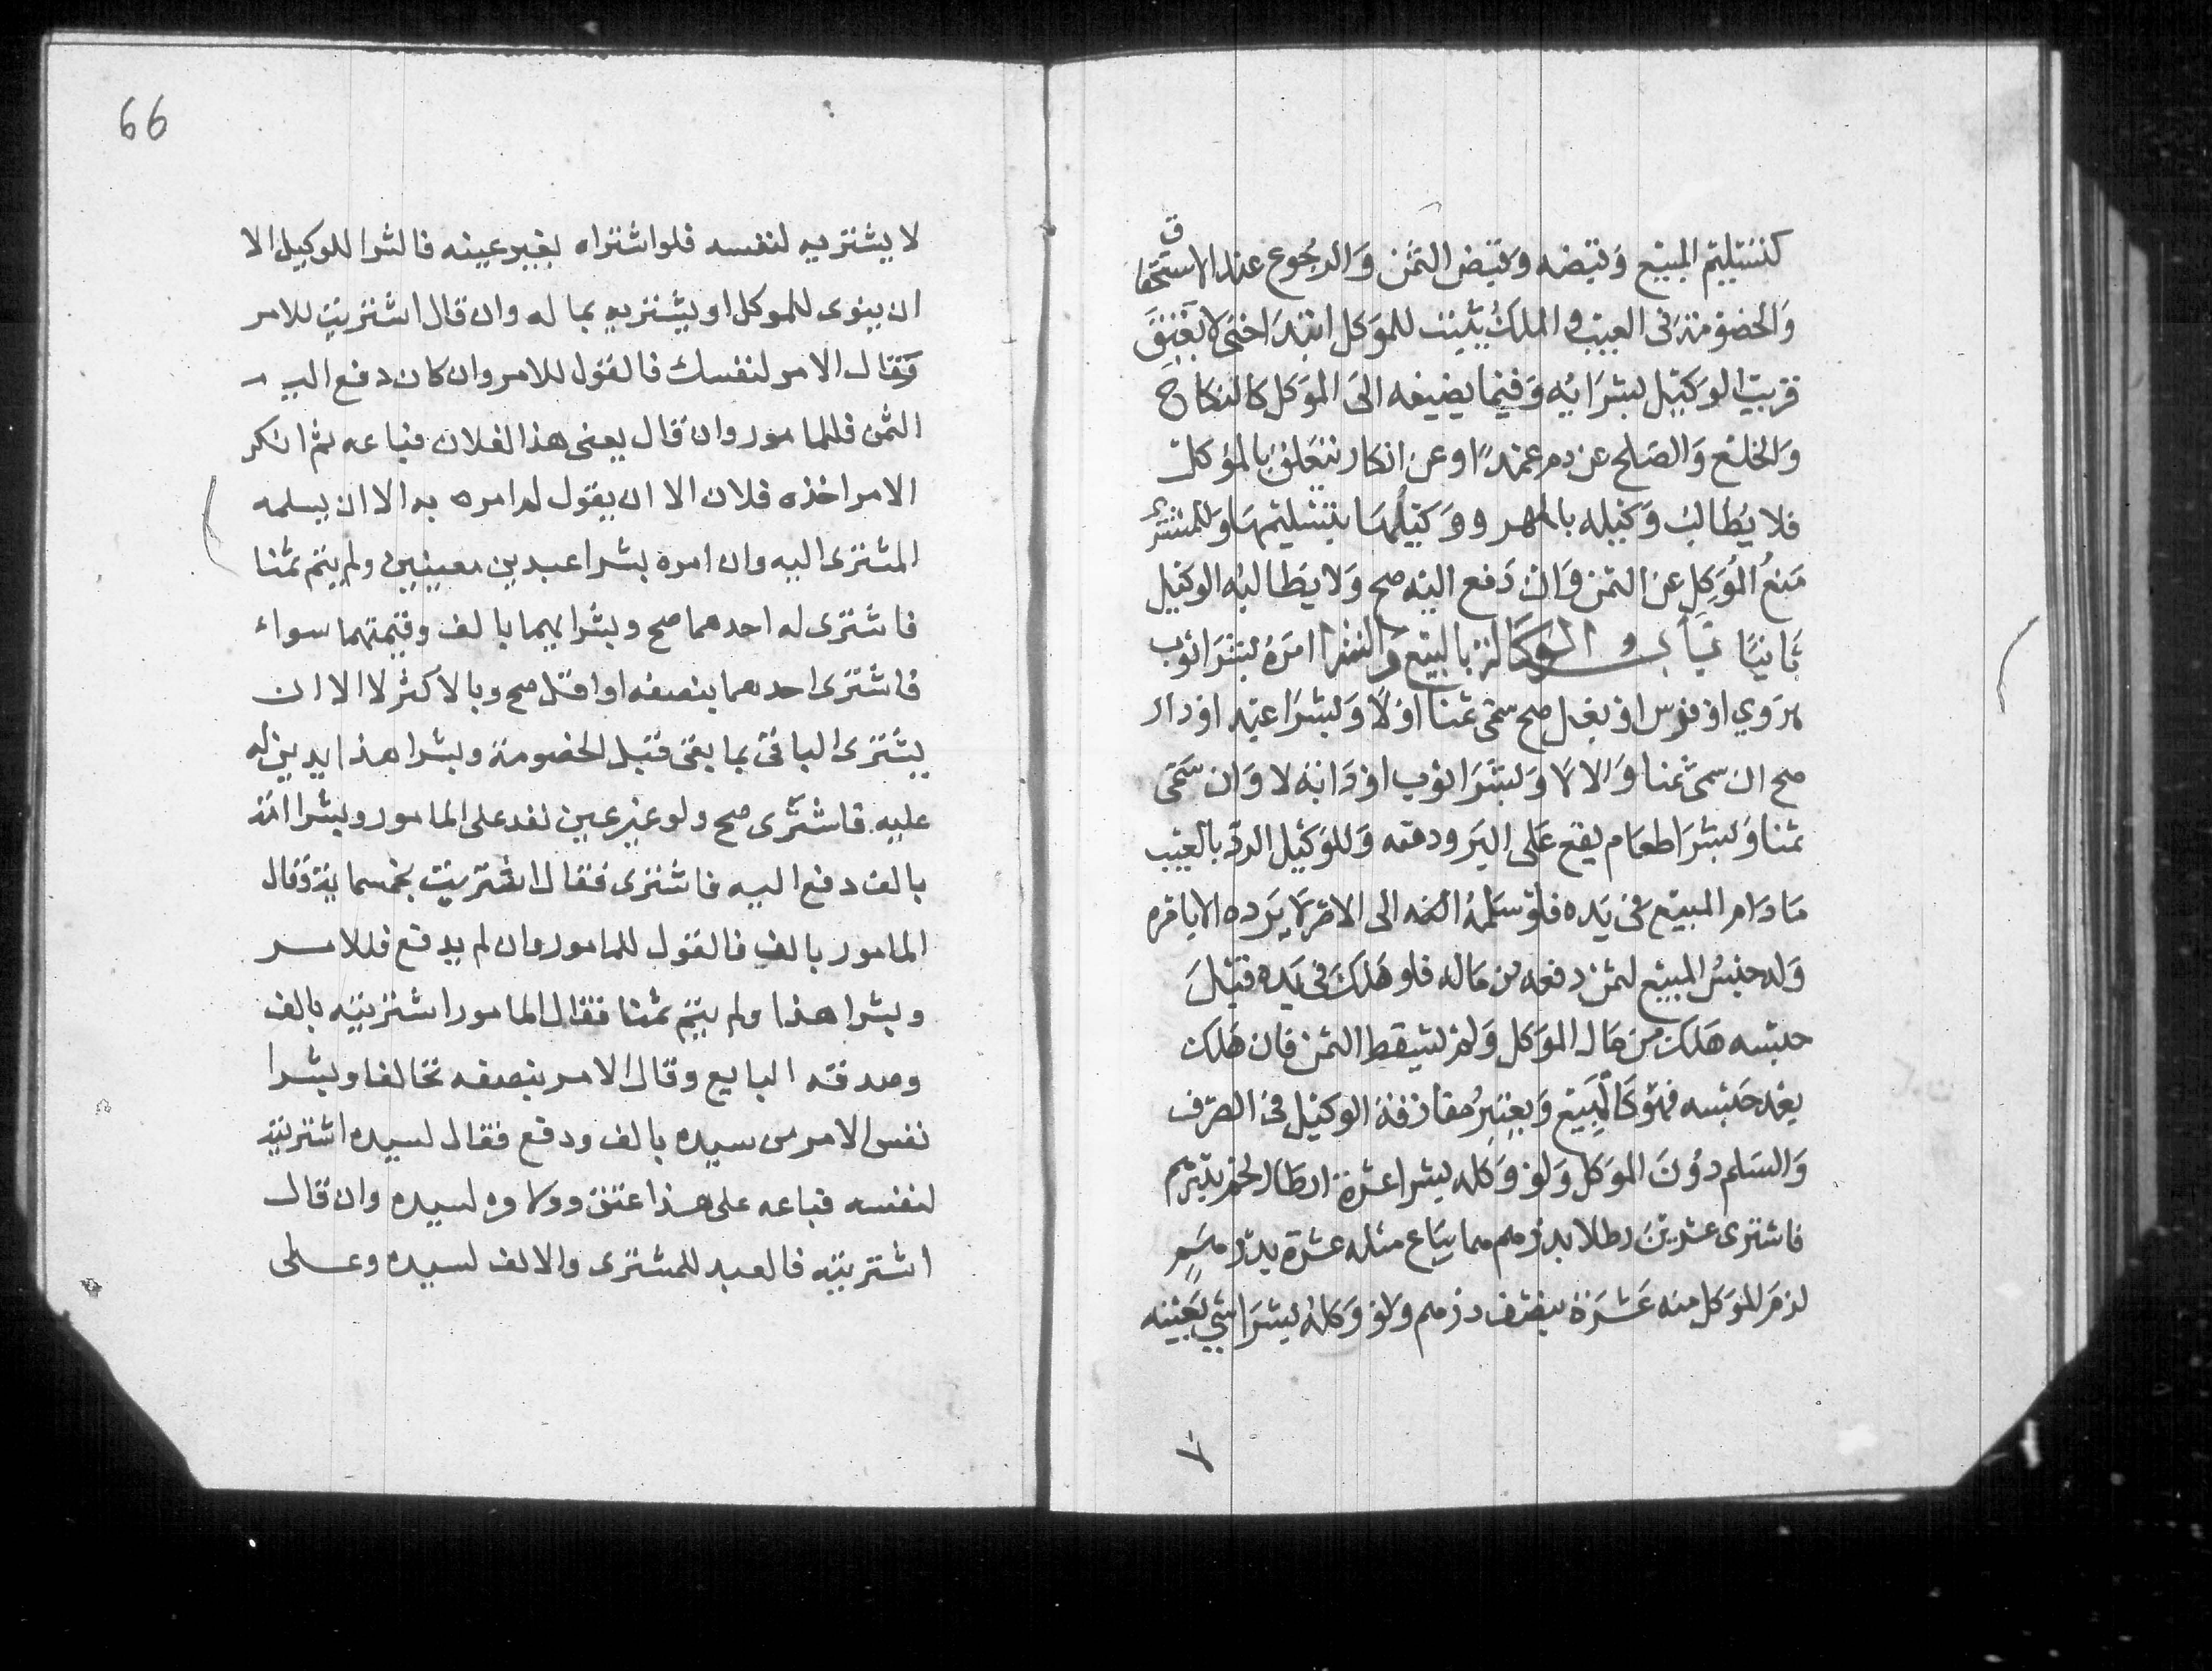 كتسليم المبيع وقبضه وقبض الثمن والرجوع عند الاستحقاق
والخصومة فى العيب والملك يثبت للموكل ابتداحتى لا يعتق
قريب الوكيل بشرايه وفيما يضيفه الى الموكل كالنكاح
والخلع والصلح عن دم عمد او عن انكار يتعلق بالموكل
فلا يطالب وكيله بالمهر ووكيلها بتسليمها وللمشترى
منع الموكل عن الثمن وان دفع اليه صح ولا يطالبه الوكيل
ثانيا باب الوكالة بالبيع والشرا امره بشرا ثوب
هروي او فرس او بغل صح سمى ثمنا اولا وبشرا عبد او دار
صح ان سمى ثمنا والا لا وبشرا ثوب او دابة لا وان سمى
ثمنا وبشرا طعام يقع على البر ودقيقه وللوكيل الرد بالعيب
ما دام المبيع فى يده فلو سلمه الى الامر لا يرده الا بامره
وله حبس المبيع لثمن دفعه من ماله فلو هلك فى يده قبل
حبسه هلك من مال الموكل ولم يسقط الثمن فان هلك
بعد حبسه فهو كالمبيع ويعتبر مفارقة الوكيل فى الصرف
والسلم دون الموكل ولو وكله بشرا عشرة ارطال لحم بدرهم
فاشترى عشرين رطلا بدرهم مما يباع مثله عشرة بدرهم
لزم للموكل منه عشرة بنصف درهم ولو وكله بشرا شي بعينه
لا
66
لا يشتريه لنفسه فلو اشتراه بغير عينه فالشرا للوكيل الا
ان ينوى للموكل او يشتريه بماله وان قال اشتريت للامر
وقال الامر لنفسك فالقول للامر وان كان دفع اليه
الثمن فللمامور وان قال بعنى هذا لفلان فباعه ثم انكر
الامر اخذه فلان الا ان يقول لم امره به الا ان يسلمه
المشترى اليه وان امره بشرا عبدين معينين ولم يسم ثمنا
فاشترى له احدهما صح وبشرايهما بالف وقيمتهما سواء
فاشترى احدهما بنصفه او اقل صح وبالاكثر لا الا ان
يشترى الباقى بما بقى قبل الخصومة وبشرا هذا بدين له
عليه فاشترى صح ولو غير عين نفد على المامور وبشرا امة
بالف دفع اليه فاشترى فقال اشتريت بخمسماية وقال
المامور بالف فالقول للمامور وان لم يدفع فللامر
وبشرا هذا ولم يسم ثمنا فقال المامور اشتريته بالف
وصدقه البايع وقال الامر بنصفه تحالفا وبشرا
نفس الامر من سيده بالف ودفع فقال لسيده اشتريته
لنفسه فباعه على هذا عتق وولاوه لسيده وان قال
اشتريته فالعبد للمشترى والالف لسيده وعلى